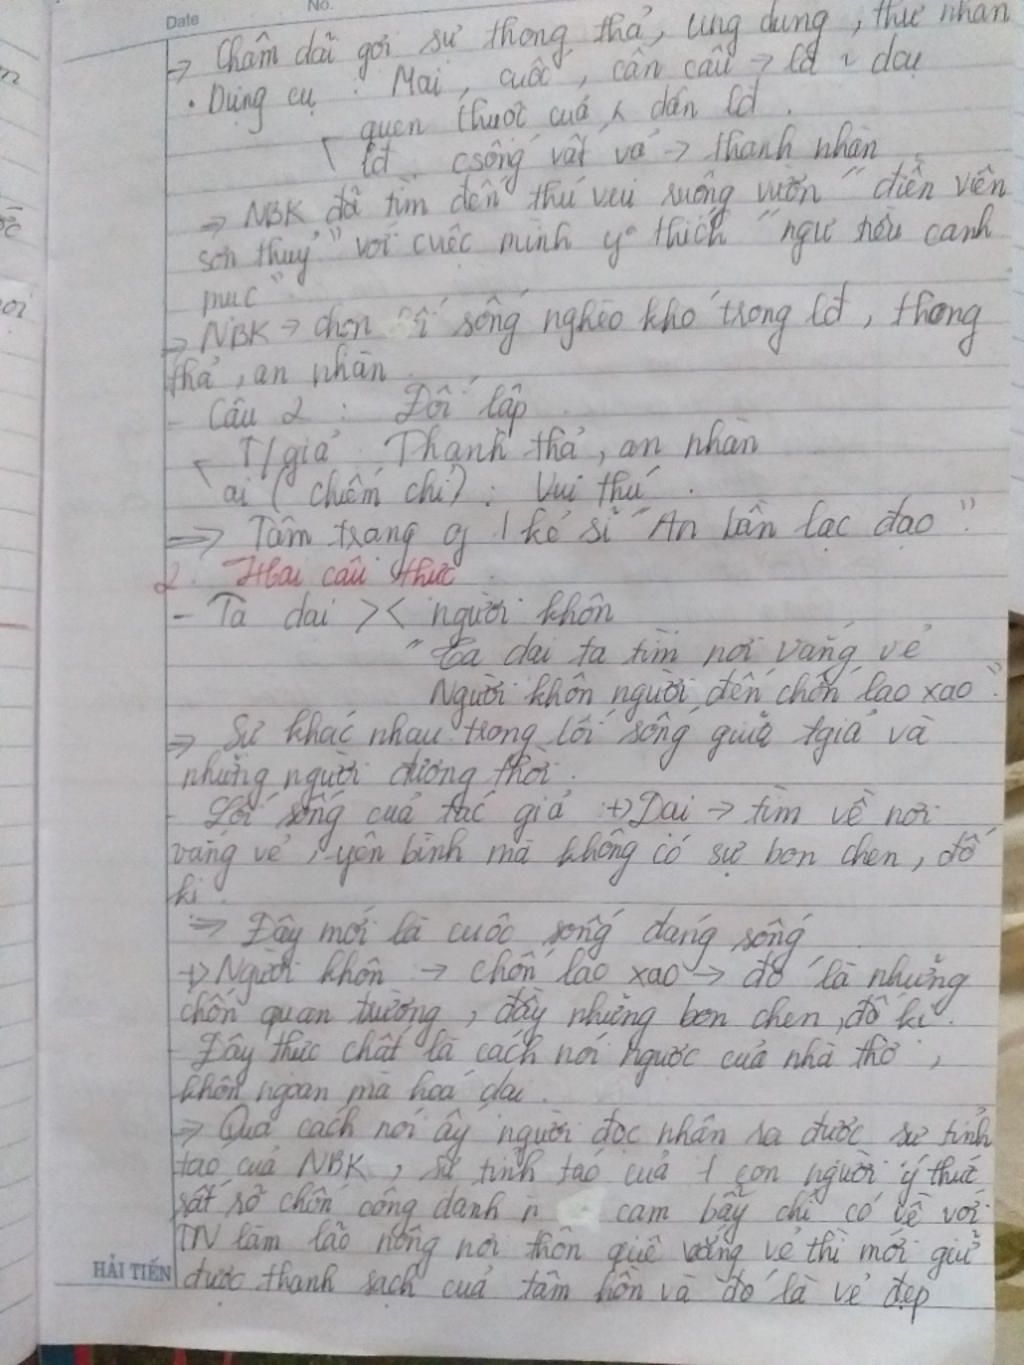 Date No.
=> Chậm dãi gợi sự thong thả, ung dung, thư nhàn
• Dụng cụ : Mai, cuốc, cần câu -> lđ ~ dcụ
quen thuộc của dân lđ.
lđ csống vất vả -> thanh nhàn
=> NBK đã tìm đến thú vui ruộng vườn "điền viên
sơn thuỷ" với cuộc mình y thích "ngư tiều canh
mục".
=> NBK -> chọn lối sống nghèo khó trong lđ, thong
thả, an nhàn.
- Câu 2 : Đối lập.
T/giả Thanh thả, an nhàn
ai (chiếm chỉ) : Vui thú.
=> Tâm trạng of 1 kẻ sĩ "An bần lạc đạo".
2. Hai câu thực.
- Ta dại >< người khôn
"Ta dại ta tìm nơi vắng vẻ
Người khôn người đến chốn lao xao".
=> Sự khác nhau trong lối sống giữa tgiả và
những người đương thời.
- Lối sống của tác giả +) Dại -> tìm về nơi
vắng vẻ, yên bình mà không có sự bon chen, đố
kị.
=> Đây mới là cuộc sống đáng sống
+) Người khôn -> chốn lao xao -> đó là những
chốn quan trường, đầy những bon chen, đố kị.
- Đây thực chất là cách nói ngược của nhà thơ,
khôn ngoan mà hoá dại.
=> Qua cách nói ấy người đọc nhận ra được sự tỉnh
táo của NBK, sự tỉnh táo của 1 con người ý thức
rất rõ chốn công danh n cạm bẫy chỉ có về với
TN làm lão nông nơi thôn quê vắng vẻ thì mới giữ
được thanh sạch của tâm hồn và đó là vẻ đẹp
HẢI TIẾN